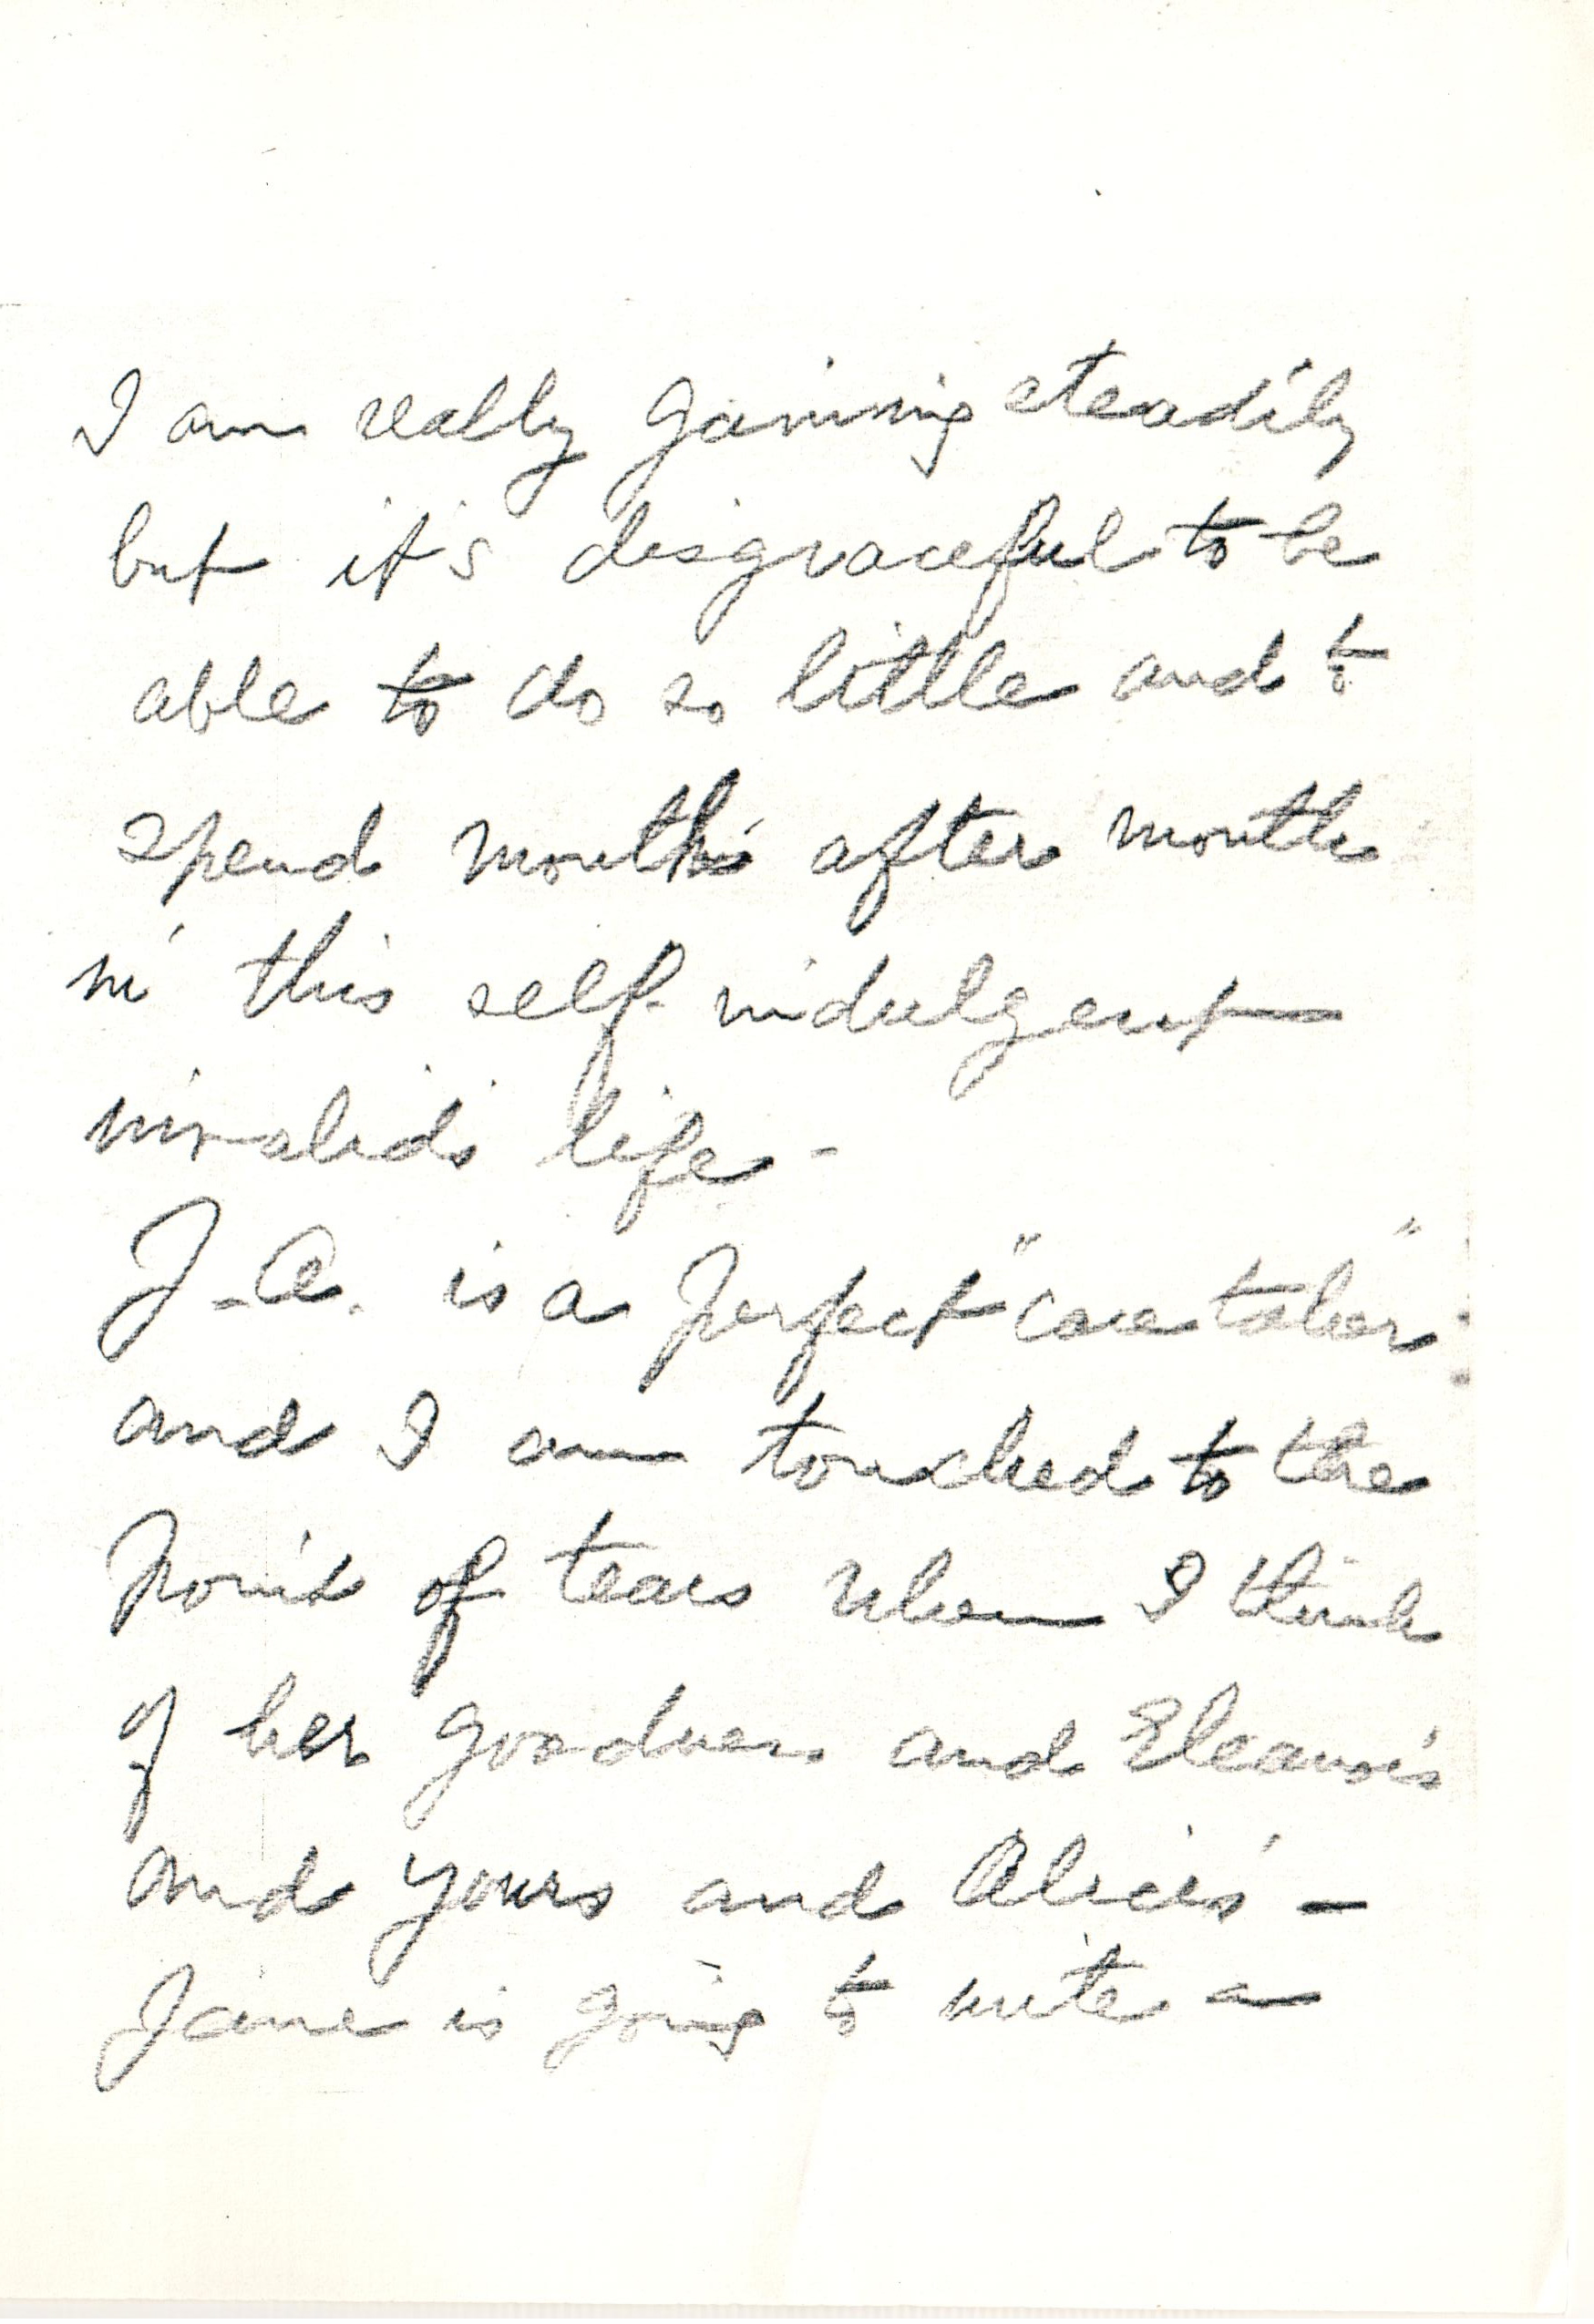 I am really gaining steadily
but it's disgraceful to be
able to do so little and to
spend months after month
in this self-indulgent
invalid's life -
J.A. is a perfect "care taker"
and I am touched to the
point of tears when I think
of her goodness and Eleanor's
and yours and Alice's -
Jane is going to write a